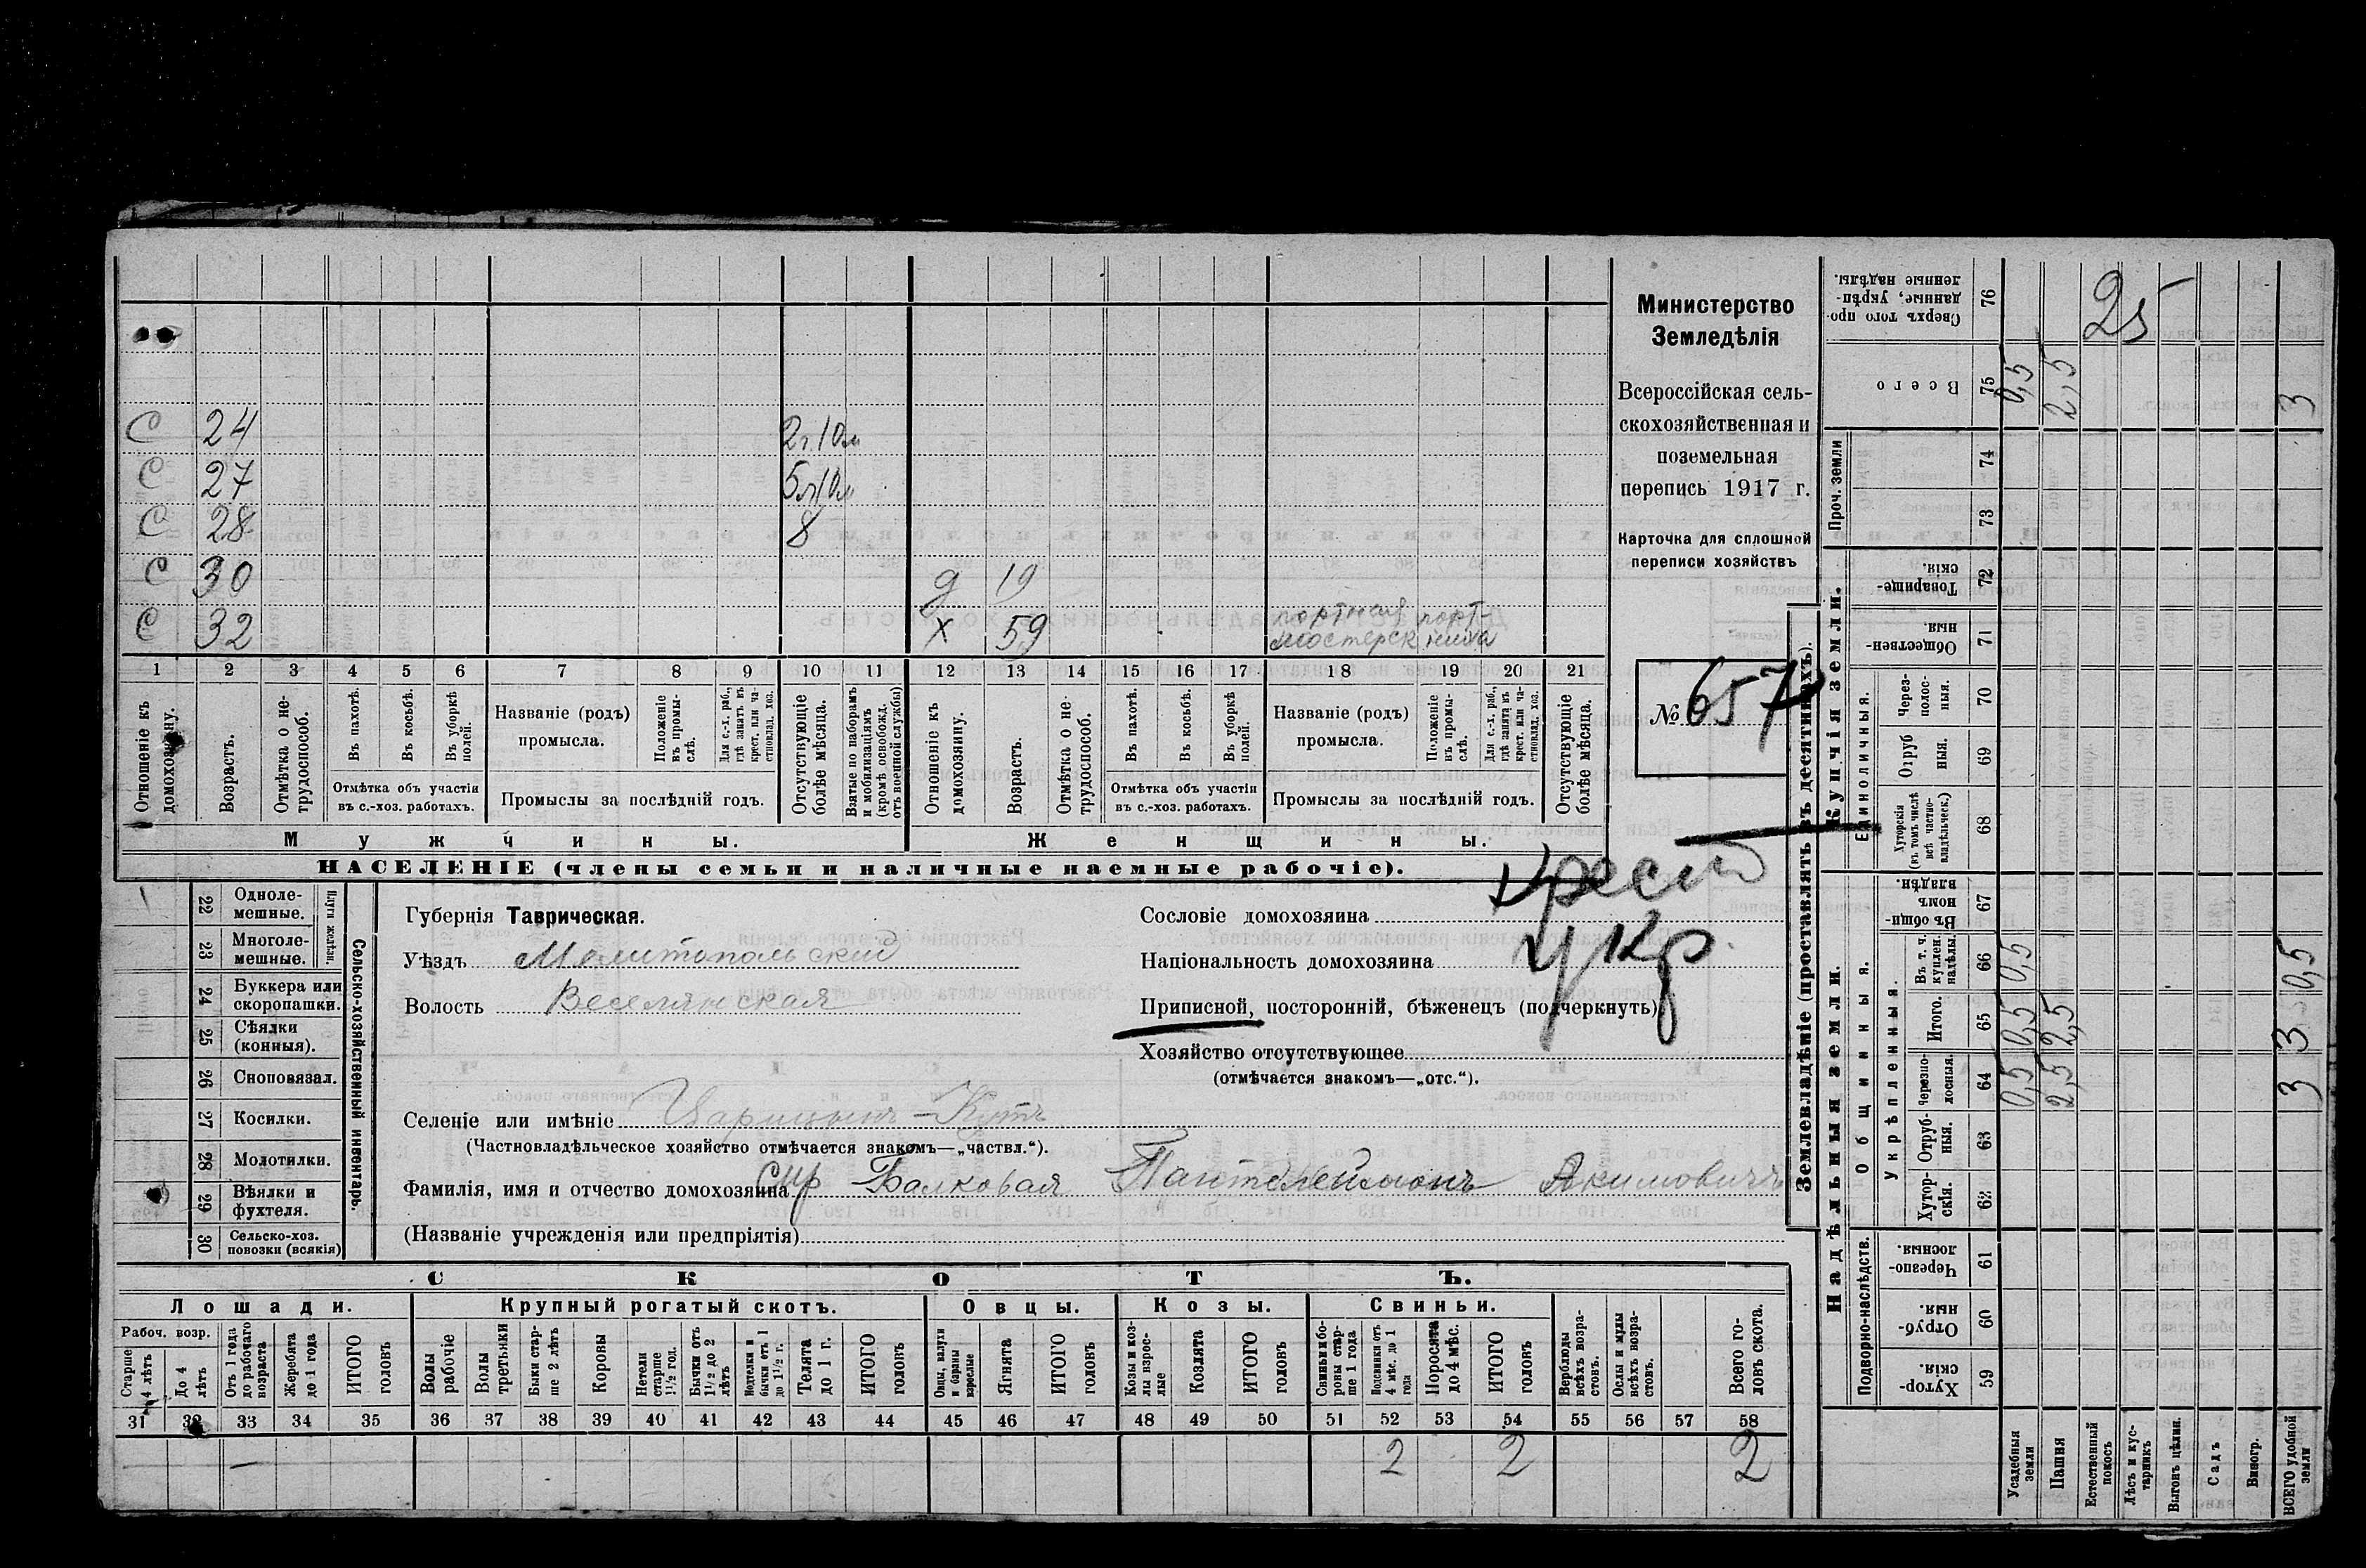 С 24 2 г 10 м
С 27 5 л 10 м
С 28 8
С 30 д 19
С 32 х 59 портная мастерск портниха
1 2 3 4 5 6 7 8 9 10 11 12 13 14 15 16 17 18 19 20 21
Отношеніе къ домохозяину.
Возрастъ.
Отмѣтка о не-трудоспособ.
Въ пахотѣ.
Въ косьбѣ.
Въ уборкѣ полей.
Отмѣтка объ участіи въ с.-хоз. работахъ.
Названіе (родъ) промысла.
Положеніе въ промы-слѣ.
Для с.-х. раб., гдѣ занятъ въ крест. или ча-стновлад. хоз.
Промыслы за послѣдній годъ.
Отсутствующіе болѣе мѣсяца.
Взятые по наборамъ и мобилизаціямъ (кромѣ освобожд. отъ военной службы)
Отношеніе къ домохозяину.
Возрастъ.
Отмѣтка о не-трудоспособ.
Въ пахотѣ.
Въ косьбѣ.
Въ уборкѣ полей.
Отмѣтка объ участіи въ с.-хоз. работахъ.
Названіе (родъ) промысла.
Положеніе въ промы-слѣ.
Для с.-х. раб., гдѣ занята въ крест. или ча-стновлад. хоз.
Промыслы за послѣдній годъ.
Отсутствующіе болѣе мѣсяца.
Мужчины. Женщины.
НАСЕЛЕНІЕ (члены семьи и наличные наемные рабочіе).
Министерство
Земледѣлія
Всероссійская сель-
скохозяйственная и
поземельная
перепись 1917 г.
Карточка для сплошной
переписи хозяйствъ
№ 657
22 Одноле-мешные.
23 Многоле-мешные.
Плуги желѣзн.
24 Буккера или скоропашки.
25 Сѣялки (конныя).
26 Сноповязал.
27 Косилки.
28 Молотилки.
29 Вѣялки и фухтеля.
30 Сельско-хоз. повозки (всякія)
Сельско-хозяйственный инвентарь.
Губернія Таврическая.
Уѣздъ Мелитопольский
Волость Веселянская
Сословіе домохозяина крест
Національность домохозяина укр.
Приписной, посторонній, бѣженецъ (подчеркнуть)
Хозяйство отсутствующее
(отмѣчается знакомъ—„отс.“).
Селеніе или имѣніе Царицынъ-Кутъ
(Частновладѣльческое хозяйство отмѣчается знакомъ—„частвл.“).
Фамилія, имя и отчество домохозяина Балковая Пантелеймонъ Якимовичъ
(Названіе учрежденія или предпріятія)
СКОТЪ.
Лошади. Крупный рогатый скотъ. Овцы. Козы. Свиньи.
Рабоч. возр.
Старше 4 лѣтъ
До 4 лѣтъ
Отъ 1 года до рабочаго возраста
Жеребята до 1 года
ИТОГО головъ
Волы рабочіе
Волы третьяки
Быки стар-ше 2 лѣтъ
Коровы
Нетели старше 1½ год.
Бычки отъ 1½ до 2 лѣтъ
Нетелки и бычки отъ 1 до 1½ г.
Телята до 1 г.
ИТОГО головъ
Овцы, валухи и бараны взрослые
Ягнята
ИТОГО головъ
Козы и коз-лы взрос-лые
Козлята
ИТОГО головъ
Свиньи и бо-ровы стар-ше 1 года
Подсвинки отъ 4 мѣс. до 1 года
Поросята до 4 мѣс.
ИТОГО головъ
Верблюды всѣхъ возра-стовъ.
Ослы и мулы всѣхъ возра-стовъ.
Всего го-ловъ скота.
31 32 33 34 35 36 37 38 39 40 41 42 43 44 45 46 47 48 49 50 51 52 53 54 55 56 57 58
2 2 2
Землевладѣніе (проставлять въ десятинахъ).
Надѣльныя земли. Купчія земли.
Подворно-наслѣдств.
Общинныя.
Укрѣпленныя.
Единоличныя.
Проч. земли
Хутор-скія. 59
Отруб-ныя. 60
Черезпо-лосныя. 61
Хутор-скія. 62
Отруб-ныя. 63
Черезпо-лосныя. 64 0,5 2,5 3
Итого. 65 0,5 2,5 3
Въ т. ч. куплен. надѣлы. 66 0,5 0,5
Въ общин-номъ владѣн. 67
Хуторскія (въ томъ числѣ всѣ частно-владѣльческ.) 68
Отруб ныя. 69
Через-полос-ныя. 70
Обществен-ныя. 71
Товарище-скія. 72
73
74
Всего 75 0,5 2,5 3
Сверхъ того про-данные, укрѣп-ленные надѣлы. 76
25
Усадебныя земли
Пашня
Естественный покосъ
Лѣсъ и кус-тарникъ
Выгонъ цѣлин.
Садъ
Виногр.
ВСЕГО удобной земли